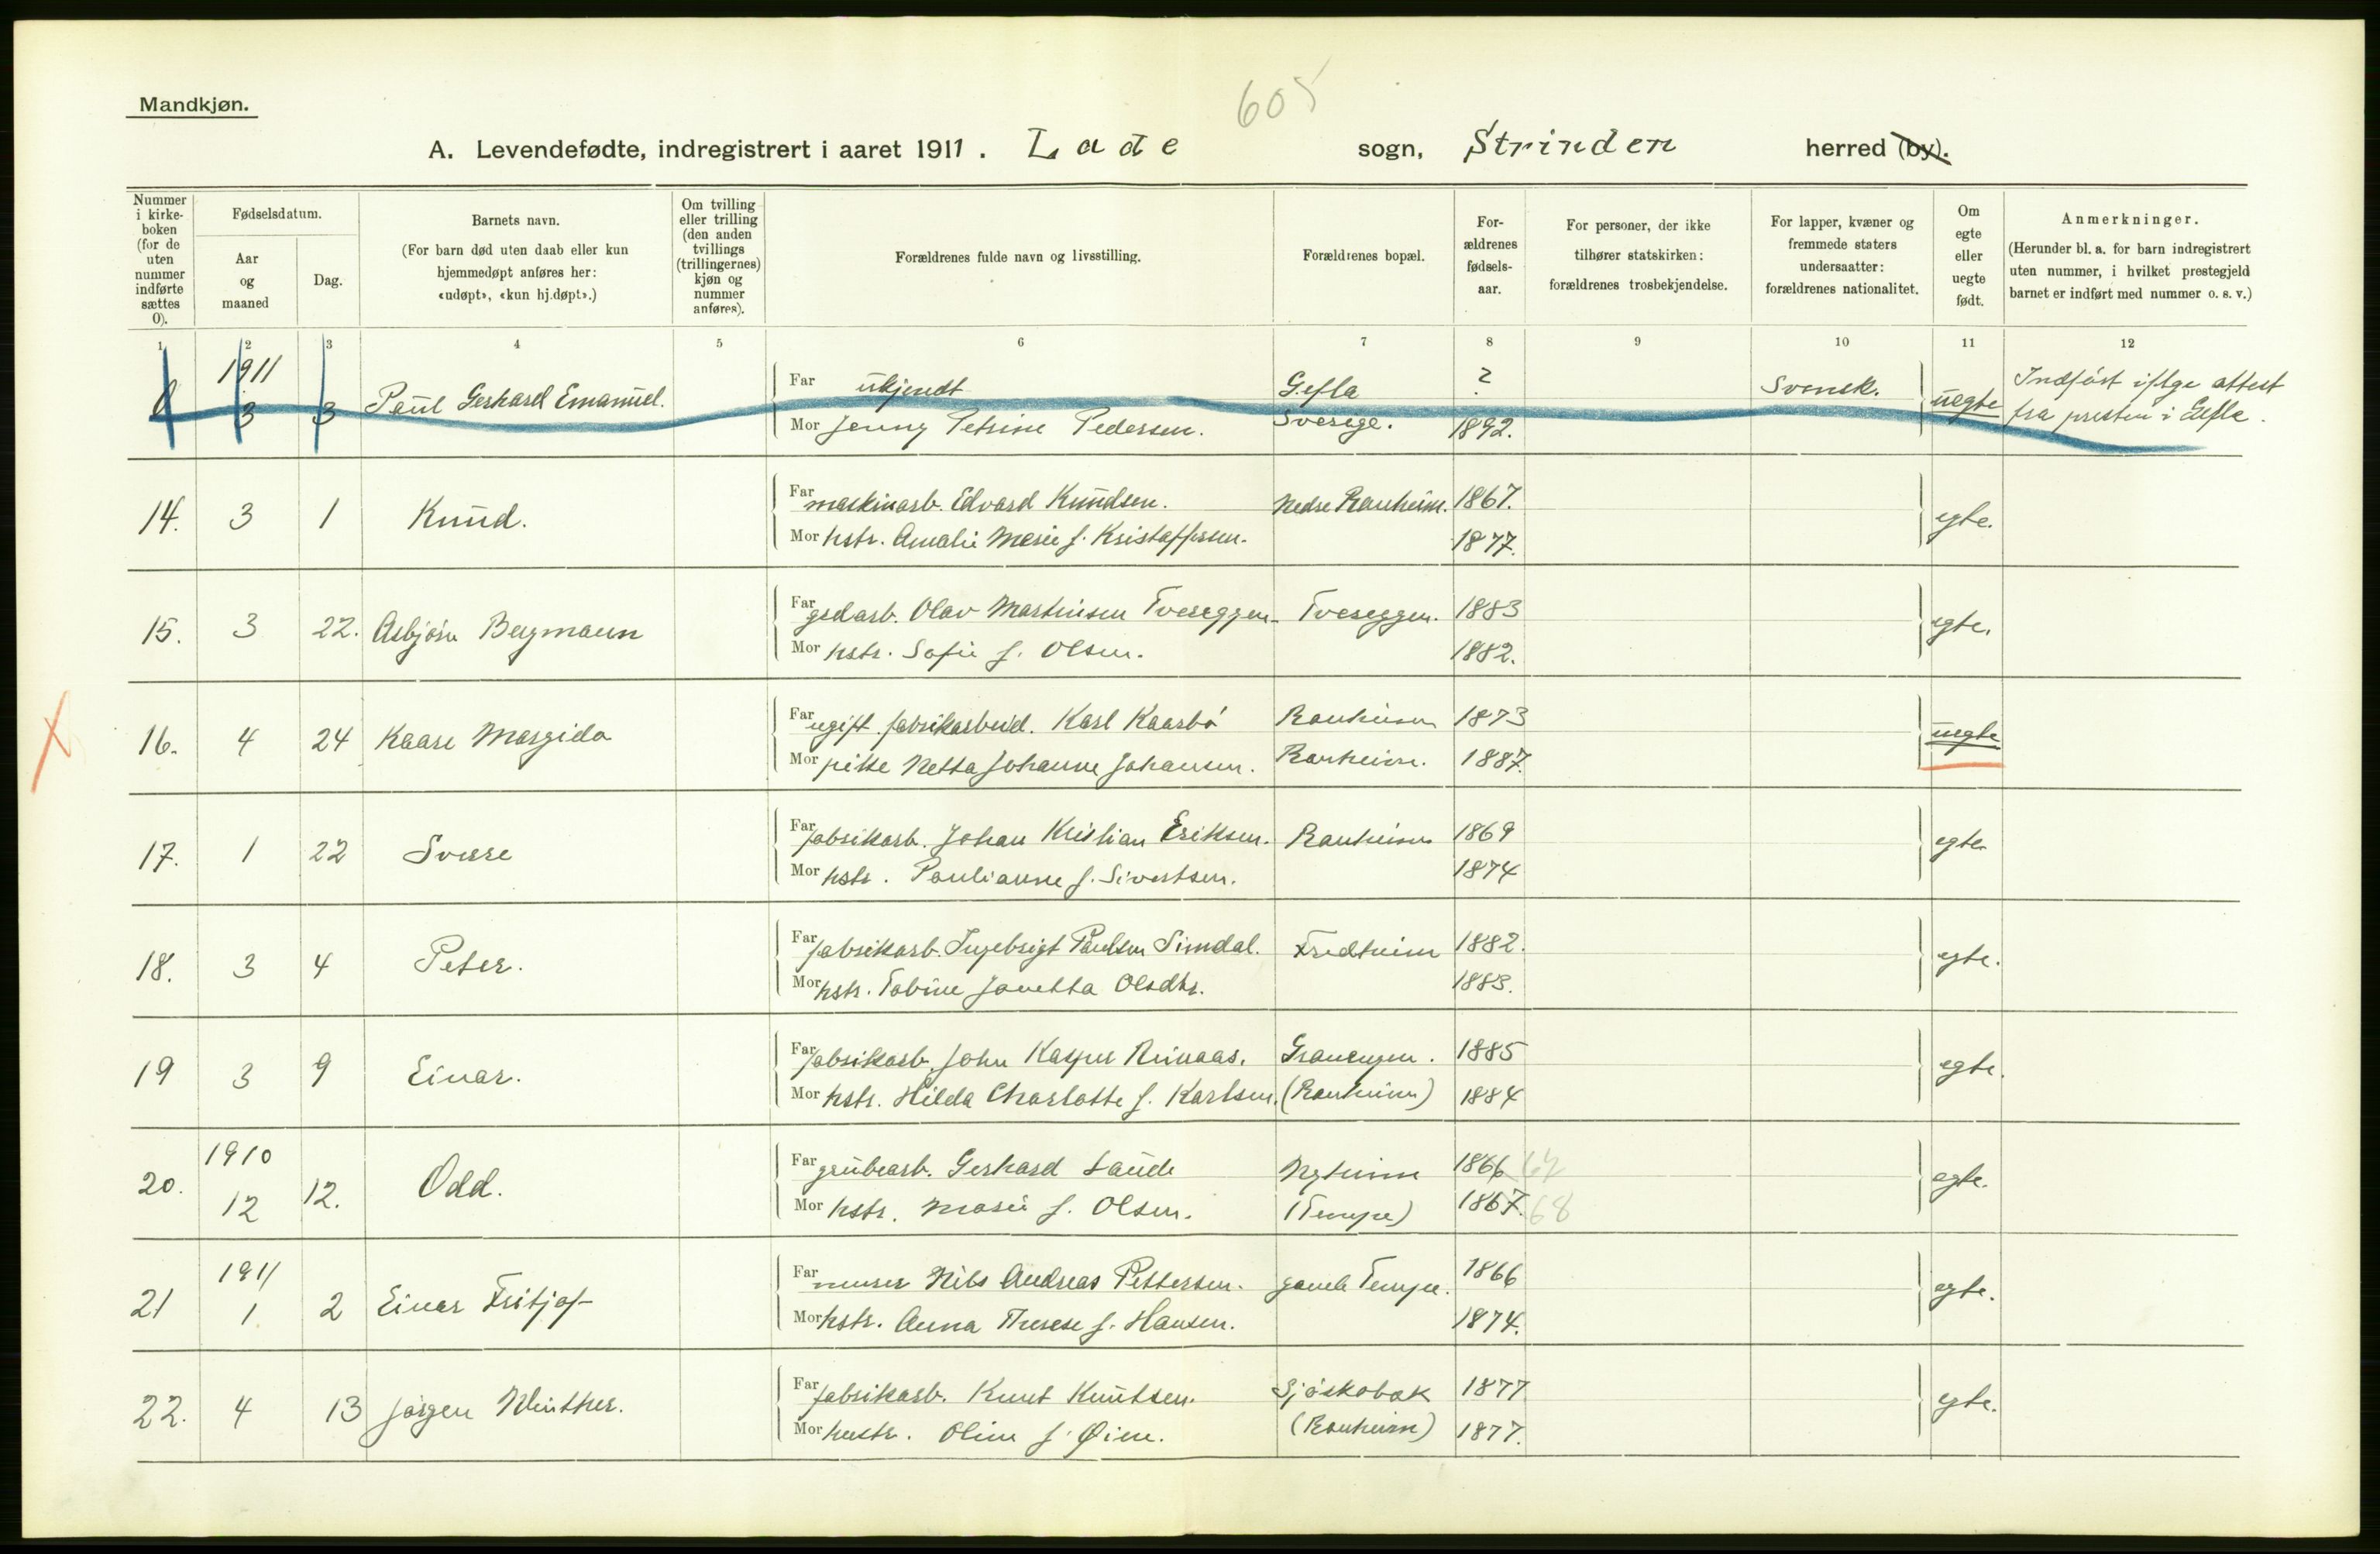 605
Mandkjøn.
A. Levendefødte, indregistrert i aaret 1911. Lade sogn, Strinden herred (by).
Nummer i kirke-boken (for de uten nummer indførte sættes 0).
Fødselsdatum.
Aar og maaned
Dag.
Barnets navn.
(For barn død uten daab eller kun hjemmedøpt anføres her: «udøpt», «kun hj.døpt».)
Om tvilling eller trilling (den anden tvillings (trillingernes) kjøn og nummer anføres).
Forældrenes fulde navn og livsstilling.
Forældrenes bopæl.
For-ældrenes fødsels-aar.
For personer, der ikke tilhører statskirken: forældrenes trosbekjendelse.
For lapper, kvæner og fremmede staters undersaatter: forældrenes nationalitet.
Om egte eller uegte født.
Anmerkninger.
(Herunder bl. a. for barn indregistrert uten nummer, i hvilket prestegjeld barnet er indført med nummer o. s. v.)
1 2 3 4 5 6 7 8 9 10 11 12
0 1911 3 3 Paul Gerhard Emanuel. Far ukjendt Gefla ? Svensk. uegte Indført iflge attest
Mor Jenny Petrine Pedersen. Sverige. 1892. fra presten i Gefle.
14. 3 1 Knud. Far maskinarb. Edvard Knudsen. Nedre Ranheim. 1867. egte.
Mor hstr. Amalie Marie f. Kristoffersen. 1877.
15. 3 22. Asbjørn Bergmann Far grdarb. Olav Martinsen Tveseggen Tveseggen. 1883 egte.
Mor hstr. Sofie f. Olsen. 1882.
16. 4 24 Kaare Margido Far ugift fabrikarbeid. Karl Kaarbø Ranheim 1873 uegte
Mor pike Netta Johanne Johansen. Ranheim. 1887.
17. 1 22 Sverre Far fabrikarb. Johan Kristian Eriksen. Ranheim 1869 egte.
Mor hstr. Paulianne f. Sivertsen. 1874
18. 3 4 Peter. Far fabrikarb. Ingebrigt Paulsen Simdal. Fredheim 1882. egte.
Mor hstr. Tobine Janetta Olsdtr. 1883.
19 3 9 Einar. Far fabrikarb. John Kasper Reinaas. Granengen. 1885 egte.
Mor hstr. Hilda Charlotte f. Karlsen. (Ranheim) 1884
20. 1910 12 12. Odd. Far grubearb. Gerhard Laude Nyheim 1866 67 egte.
Mor hstr. Marie f. Olsen. (Tempe) 1867. 68
21 1911 1 2 Einar Fritjof Far murer Nils Andreas Pettersen. gamle Tempe. 1866 egte.
Mor hstr. Anna Therese f. Hansen. 1874.
22. 4 13 Jørgen Winther. Far fabrikarb. Knut Knutsen. Sjøskobak 1877 egte.
Mor hustr. Oline f. Øien. (Ranheim) 1877.